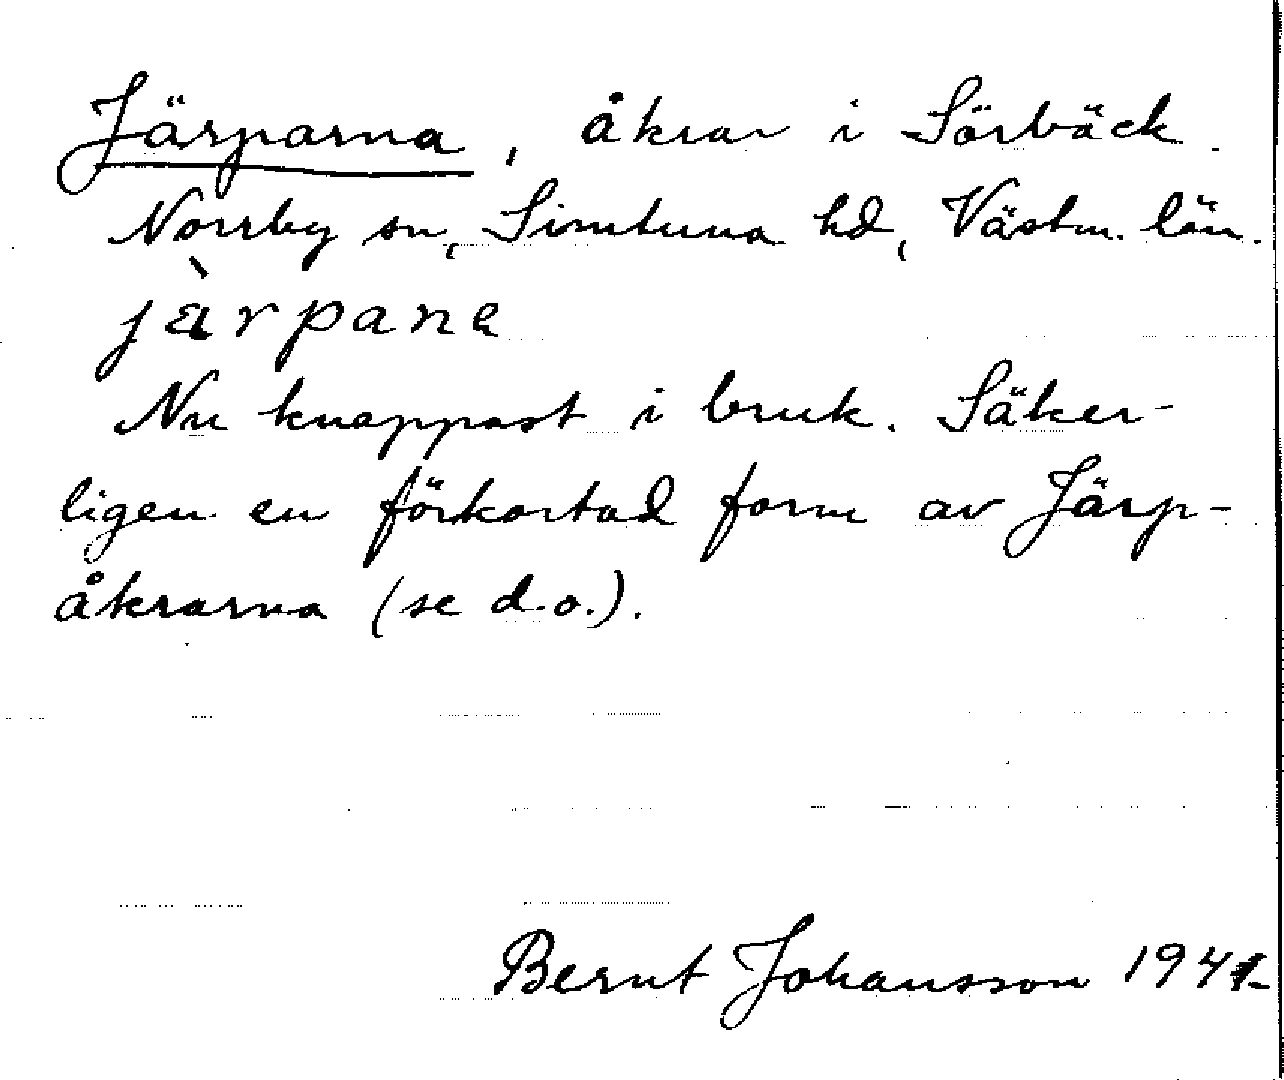 Järparna, åkrar i Sörbäck.
Norrby sn, Simtuna hd, Västm. län.
jàrpana
Nu knappast i bruk. Säker-
ligen en förkortad form av Järp-
åkrarna (se d.o.).
Bernt Johansson